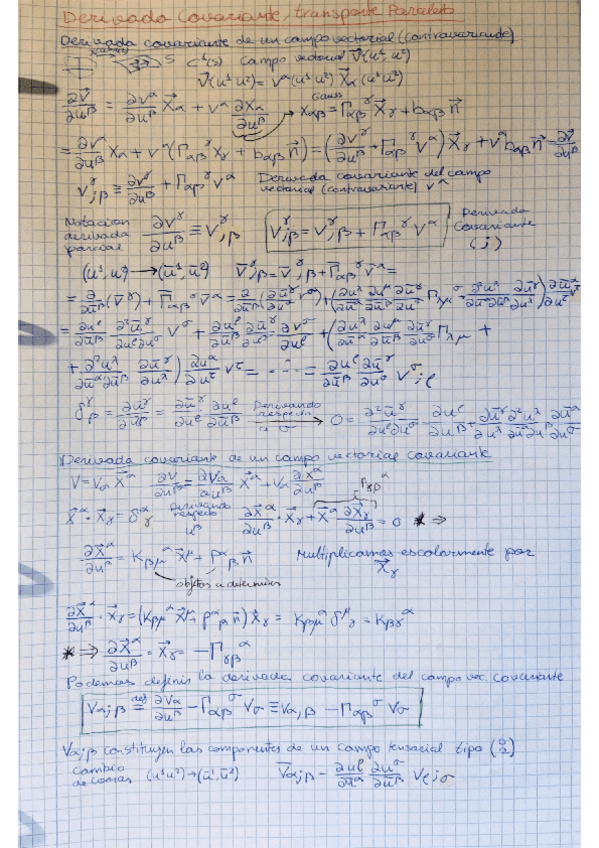 Derivada Covariante, transporte Paralelo
Derivada covariante de un campo vectorial (contravariante)
S C¹(S) Campo vectorial V⃗(u¹,u²)
V⃗(u¹,u²) = v^α(u¹,u²) X⃗_α(u¹,u²)
∂V⃗/∂u^β = ∂v^α/∂u^β X⃗_α + v^α ∂X_α/∂u^β → Gauss X_αβ = Γ_αβ^γ X⃗_γ + b_αβ n⃗
= ∂v^α/∂u^β X_α + v^α(Γ_αβ^γ X_γ + b_αβ n⃗) = (∂v^γ/∂u^β + Γ_αβ^γ v^α) X⃗_γ + v^α b_αβ n⃗ = ∂V⃗/∂u^β
v^γ_;β ≡ ∂v^γ/∂u^β + Γ_αβ^γ v^α Derivada covariante del campo
vectorial (contravariante) v^α
Notacion derivada parcial ∂v^γ/∂u^β ≡ v^γ_,β v^γ_;β = v^γ_,β + Γ_αβ^γ v^α Derivada Covariante (;)
(u¹,u²) → (ū¹,ū²) v̄^γ_;β = v̄^γ_,β + Γ̄_αβ^γ v̄^α =
= ∂/∂ū^β (v̄^γ) + Γ̄_αβ^γ v̄^α = ∂/∂ū^β (∂ū^γ/∂u^σ v^σ) + (∂u^λ/∂ū^α ∂u^μ/∂ū^β ∂ū^γ/∂u^σ Γ_λμ^σ + ∂²u^λ/∂ū^α∂ū^β ∂ū^γ/∂u^λ) ∂ū^α/∂u^τ v^τ
= ∂u^ρ/∂ū^β ∂²ū^γ/∂u^ρ∂u^σ v^σ + ∂u^ρ/∂ū^β ∂ū^γ/∂u^σ ∂v^σ/∂u^ρ + (∂u^λ/∂ū^α ∂u^μ/∂ū^β ∂ū^γ/∂u^σ Γ_λμ^σ +
+ ∂²u^λ/∂ū^α∂ū^β ∂ū^γ/∂u^λ) ∂ū^α/∂u^τ v^τ = ... = ∂u^ρ/∂ū^β ∂ū^γ/∂u^σ v^σ_;ρ
δ^γ_β = ∂ū^γ/∂ū^β = ∂ū^γ/∂u^ρ ∂u^ρ/∂ū^β Derivando respecto u^σ → 0 = ∂²ū^γ/∂u^ρ∂u^σ ∂u^ρ/∂ū^β + ∂ū^γ/∂u^λ ∂²u^λ/∂ū^α∂ū^β ∂ū^α/∂u^σ
Derivada covariante de un campo vectorial covariante
V = V_α X⃗^α ∂V/∂u^β = ∂V_α/∂u^β X⃗^α + V_α ∂X⃗^α/∂u^β
X⃗^α · X⃗_γ = δ^α_γ Derivando respecto u^β ∂X⃗^α/∂u^β · X⃗_γ + X⃗^α · ∂X⃗_γ/∂u^β = 0 * ⇒ Γ_γβ^α
∂X⃗^α/∂u^β = K_βμ^α X⃗^μ + P^α_β n⃗ Multiplicamos escalarmente por X⃗_γ
objetos a determinar
∂X⃗^α/∂u^β · X⃗_γ = (K_βμ^α X⃗^μ + P^α_β n⃗) X⃗_γ = K_βμ^α δ^μ_γ = K_βγ^α
* ⇒ ∂X⃗^α/∂u^β · X⃗_γ = -Γ_γβ^α
Podemos definir la derivada covariante del campo vec. covariante
V_α;β ≝ ∂V_α/∂u^β - Γ_αβ^σ V_σ ≡ V_α,β - Γ_αβ^σ V_σ
V_α;β constituyen las componentes de un campo tensorial tipo (0 2)
Cambio de coords (u¹,u²) → (ū¹,ū²) V̄_α;β = ∂u^ρ/∂ū^α ∂u^σ/∂ū^β V_ρ;σ